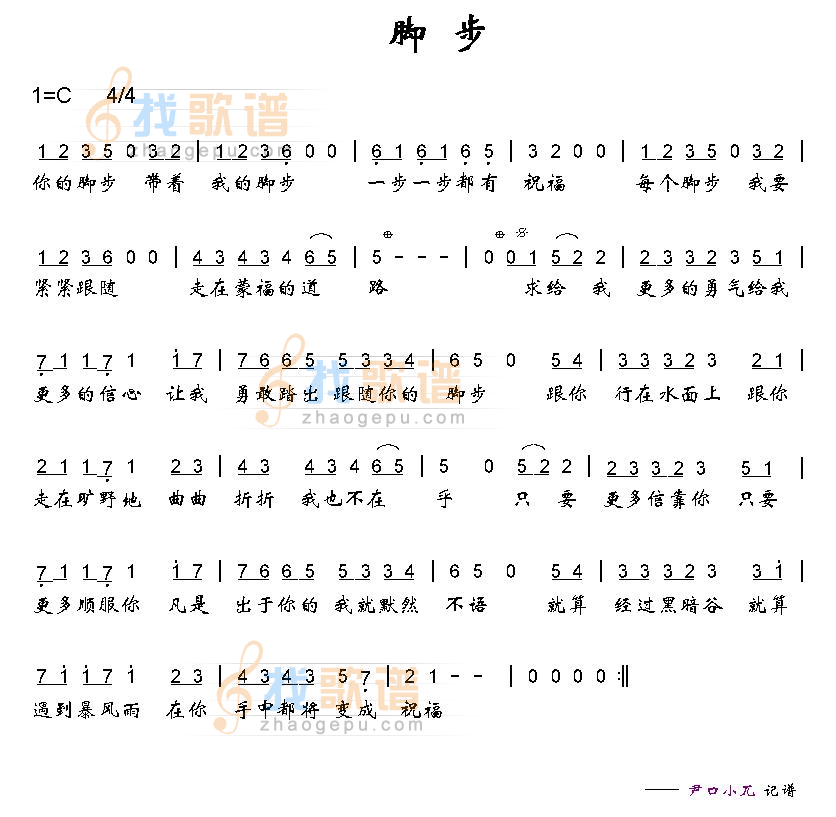 脚步
1=C 4/4
1 2 3 5 0 3 2 | 1 2 3 6 0 0 | 6 1 6 1 6 5 | 3 2 0 0 | 1 2 3 5 0 3 2 |
你的脚步 带着 我的脚步 一步一步都有 祝福 每个脚步 我要
1 2 3 6 0 0 | 4 3 4 3 4 6 5 | 5 - - - | 0 0 1 5 2 2 | 2 3 3 2 3 5 1 |
紧紧跟随 走在蒙福的道 路 求给 我 更多的勇气给我
7 1 1 7 1 1 7 | 7 6 6 5 5 3 3 4 | 6 5 0 5 4 | 3 3 3 2 3 2 1 |
更多的信心 让我 勇敢踏出 跟随你的 脚步 跟你 行在水面上 跟你
2 1 1 7 1 2 3 | 4 3 4 3 4 6 5 | 5 0 5 2 2 | 2 3 3 2 3 5 1 |
走在旷野地 曲曲 折折 我也不在 乎 只 要 更多信靠你 只要
7 1 1 7 1 1 7 | 7 6 6 5 5 3 3 4 | 6 5 0 5 4 | 3 3 3 2 3 3 1 |
更多顺服你 凡是 出于你的 我就默然 不语 就算 经过黑暗谷 就算
7 1 1 7 1 2 3 | 4 3 4 3 5 7 | 2 1 - - | 0 0 0 0 :||
遇到暴风雨 在你 手中都将 变成 祝福
—— 尹口小兀 记谱
找歌谱
zhaogepu.com
找歌谱
zhaogepu.com
找歌谱
zhaogepu.com